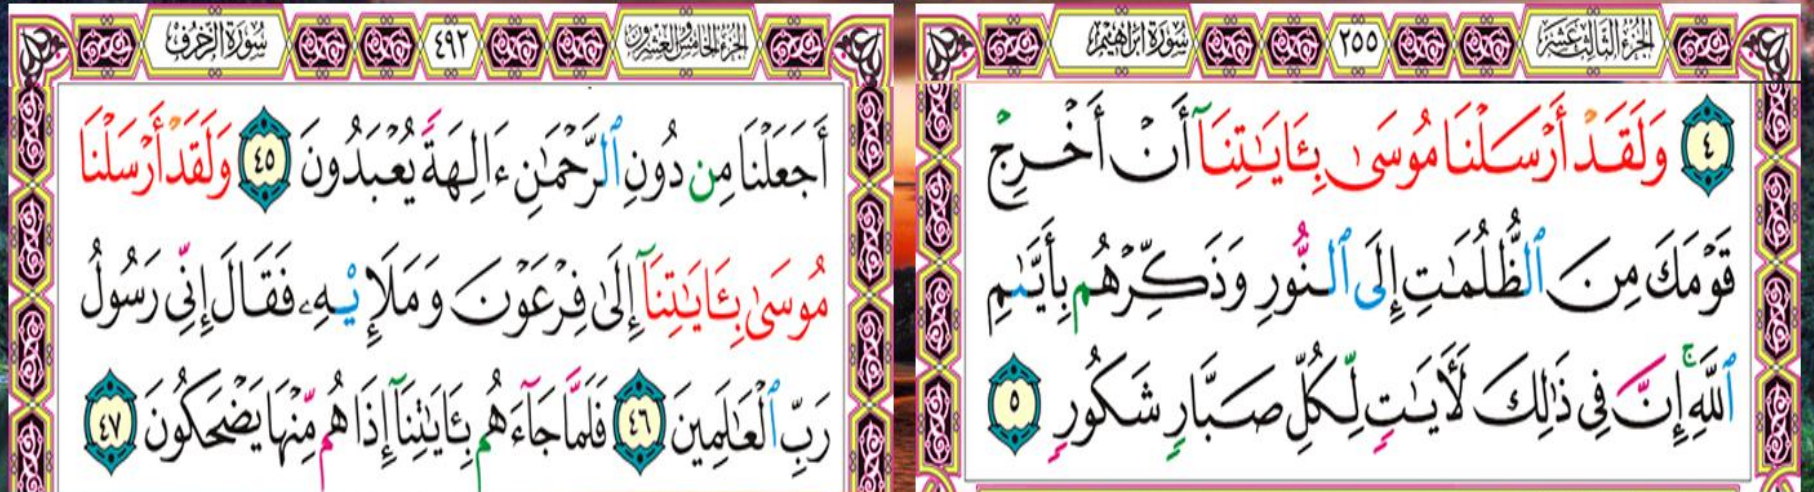 الجزء الثالث عشر ٢٥٥ سورة إبراهيم
٤ وَلَقَدْ أَرْسَلْنَا مُوسَىٰ بِـَٔايَـٰتِنَآ أَنْ أَخْرِجْ
قَوْمَكَ مِنَ ٱلظُّلُمَـٰتِ إِلَى ٱلنُّورِ وَذَكِّرْهُم بِأَيَّىٰمِ
ٱللَّهِ ۚ إِنَّ فِى ذَٰلِكَ لَـَٔايَـٰتٍ لِّكُلِّ صَبَّارٍ شَكُورٍ ٥
الجزء الخامس والعشرون ٤٩٢ سورة الزخرف
أَجَعَلْنَا مِن دُونِ ٱلرَّحْمَـٰنِ ءَالِهَةً يُعْبَدُونَ ٤٥ وَلَقَدْ أَرْسَلْنَا
مُوسَىٰ بِـَٔايَـٰتِنَآ إِلَىٰ فِرْعَوْنَ وَمَلَإِي۟هِۦ فَقَالَ إِنِّى رَسُولُ
رَبِّ ٱلْعَـٰلَمِينَ ٤٦ فَلَمَّا جَآءَهُم بِـَٔايَـٰتِنَآ إِذَا هُم مِّنْهَا يَضْحَكُونَ ٤٧